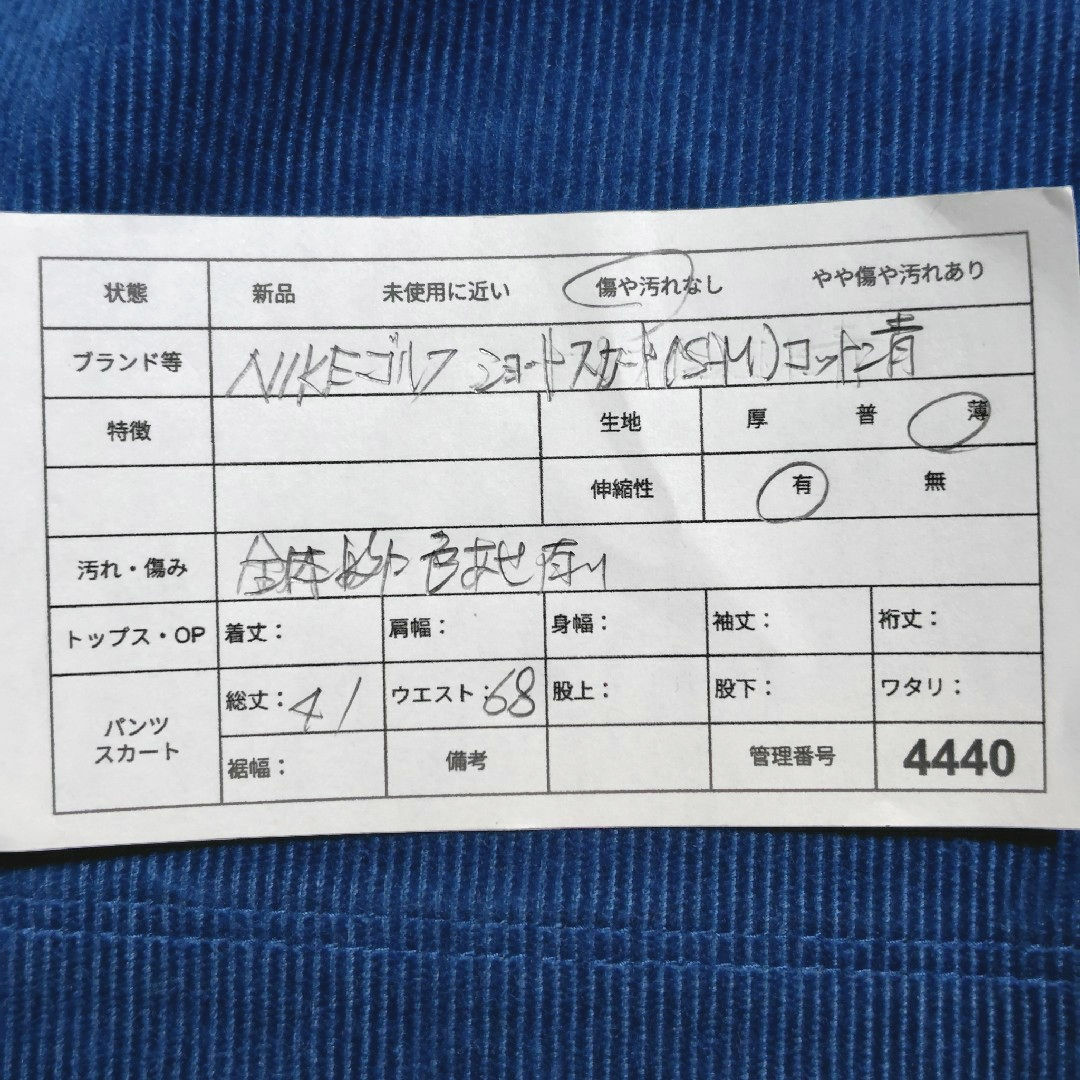 状態 新品 未使用に近い 傷や汚れなし やや傷や汚れあり
ブランド等 NIKEゴルフ ショートスカート(S-M)コットン青
特徴 生地 厚 普 薄
伸縮性 有 無
汚れ・傷み 全体 色あせ有り
トップス・OP 着丈: 肩幅: 身幅: 袖丈: 裄丈:
パンツ スカート 総丈:41 ウエスト:68 股上: 股下: ワタリ:
裾幅: 備考 管理番号 4440